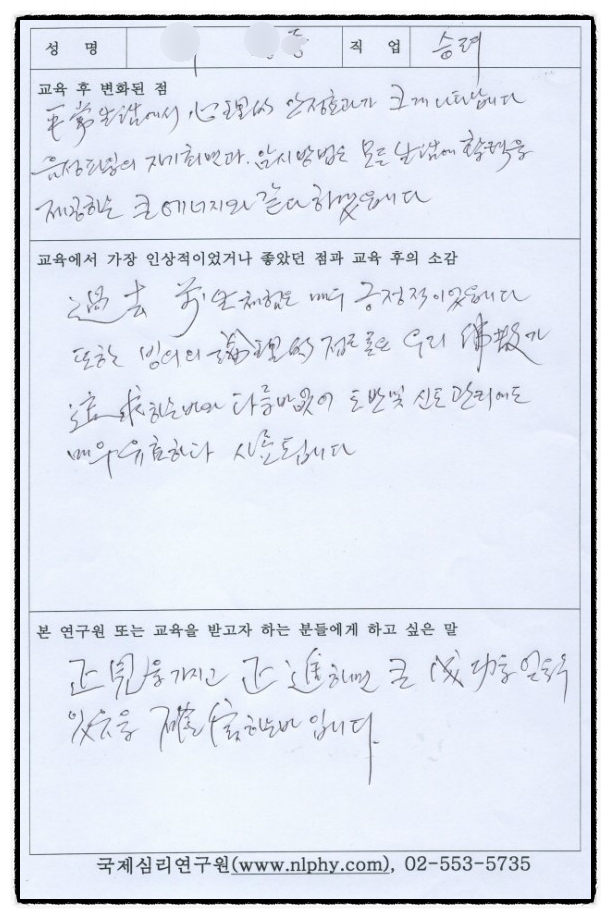 성 명 직 업 승려
교육 후 변화된 점
平常生活에서 心理的 안정효과가 크게 나타납니다
음성타임의 자기최면과 암시방법은 모든 날에 활력을
제공하는 큰 에너지와 같다 하겠읍니다
교육에서 가장 인상적이었거나 좋았던 점과 교육 후의 소감
過去 前生체험은 매우 긍정적이었읍니다
또한 빙의의 論理的 접근론은 우리 佛敎가
追求하는바와 다름바없이 도반및 신도관리에도
매우 유효하다 사료됩니다
본 연구원 또는 교육을 받고자 하는 분들에게 하고 싶은 말
正見을 가지고 正進하면 큰 成功을 얻을수
있음을 確信하는바 입니다.
국제심리연구원(www.nlphy.com), 02-553-5735